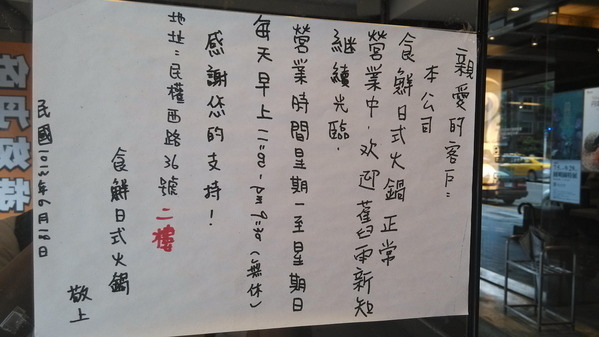 親愛的客戶：
本公司
食鮮日式火鍋正常
營業中，欢迎舊雨新知
繼續光臨．
營業時間星期一至星期日
每天早上
(無休)
感謝您的支持！
地址：民權西路36號二樓
食鮮日式火鍋
敬上
佐丹奴特